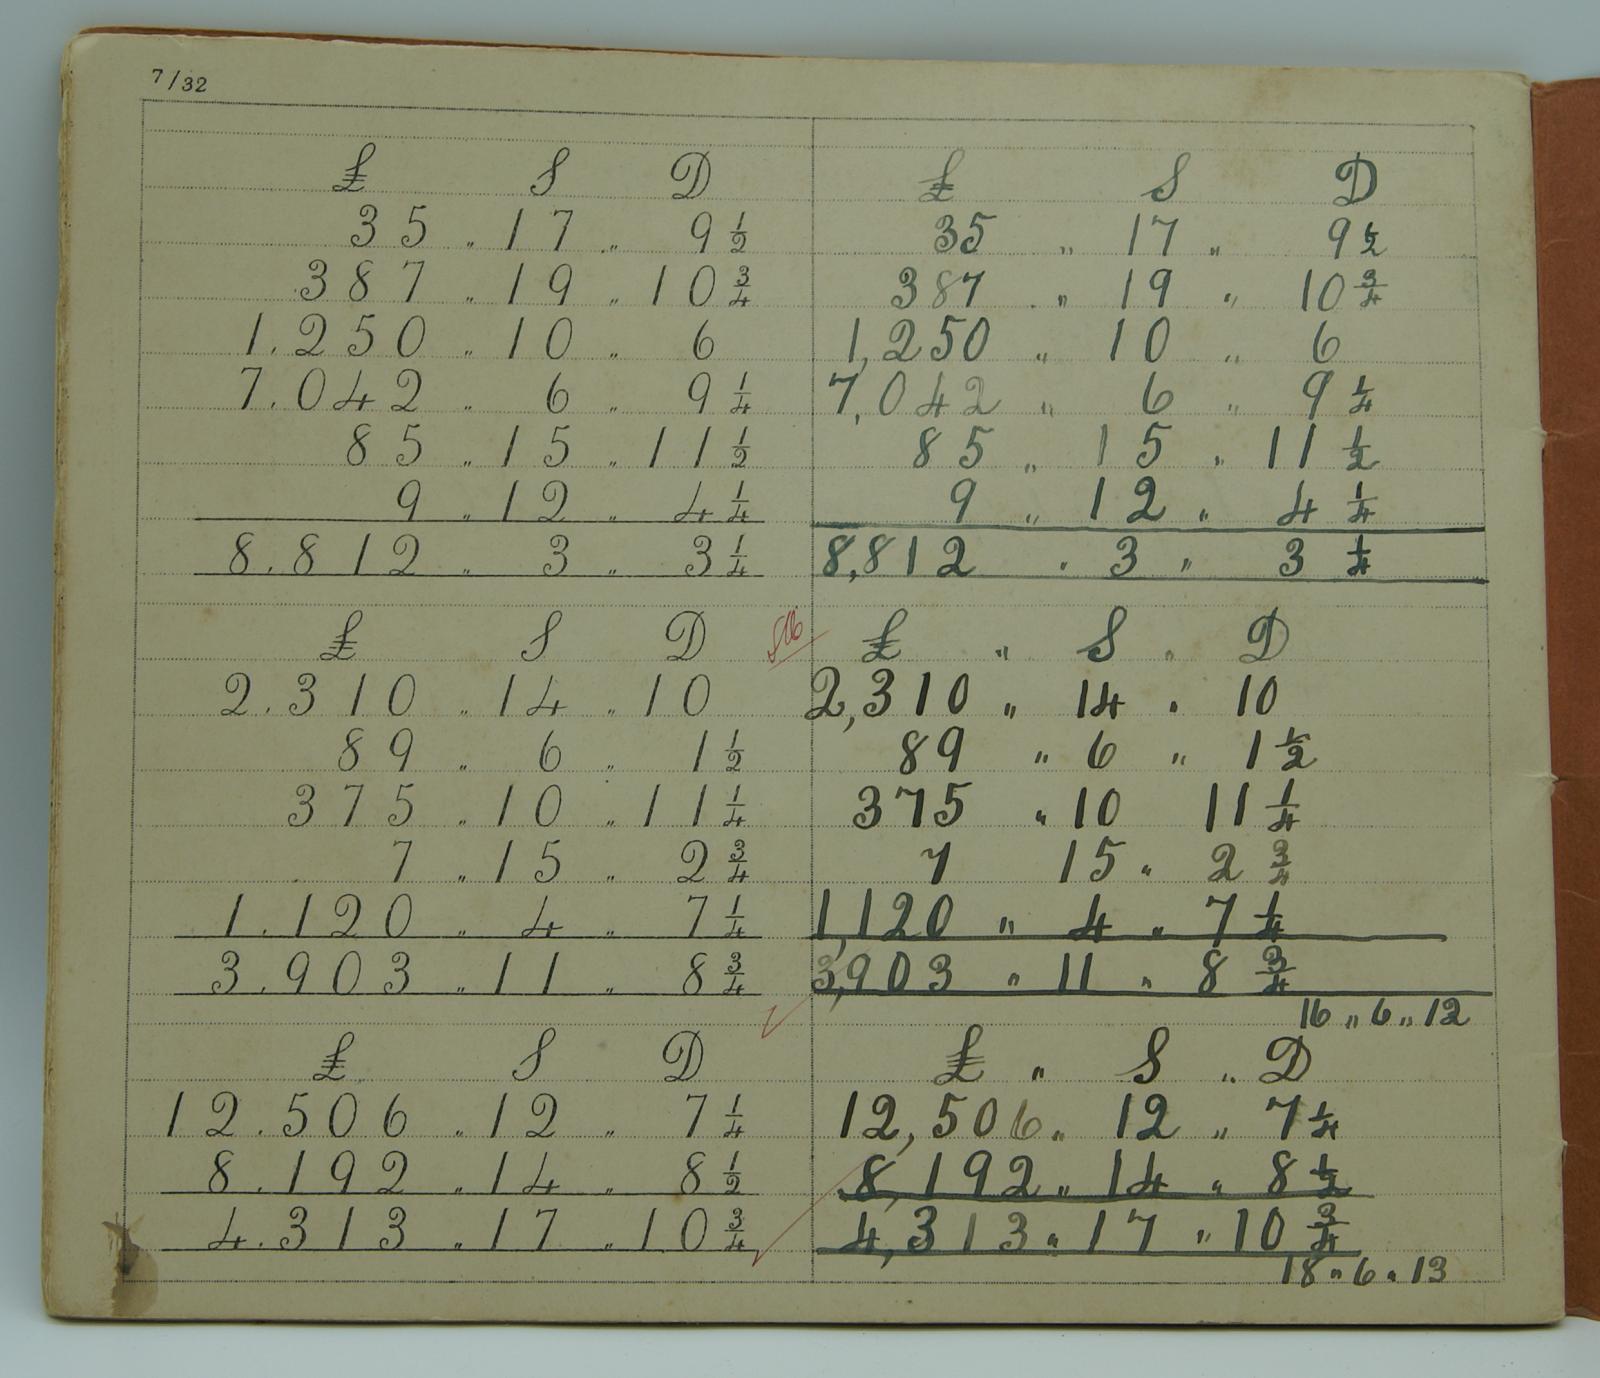 7/32
£ S D
35 " 17 " 9 1/2
387 " 19 " 10 3/4
1.250 " 10 " 6
7.042 " 6 " 9 1/4
85 " 15 " 11 1/2
9 " 12 " 4 1/4
8.812 " 3 " 3 1/4
£ S D
2.310 " 14 " 10
89 " 6 " 1 1/2
375 " 10 " 11 1/4
7 " 15 " 2 3/4
1.120 " 4 " 7 1/4
3.903 " 11 " 8 3/4
£ S D
12.506 " 12 " 7 1/4
8.192 " 14 " 8 1/2
4.313 " 17 " 10 3/4
£ S D
35 " 17 " 9 1/2
387 " 19 " 10 3/4
1,250 " 10 " 6
7,042 " 6 " 9 1/4
85 " 15 " 11 1/2
9 " 12 " 4 1/4
8,812 " 3 " 3 1/4
£ " S " D
2,310 " 14 " 10
89 " 6 " 1 1/2
375 " 10 11 1/4
7 15 " 2 3/4
1,120 " 4 " 7 1/4
3,903 " 11 " 8 3/4
16 " 6 " 12
£ " S " D
12,506 " 12 " 7 1/4
8,192 " 14 " 8 1/2
4,313 " 17 " 10 3/4
18 " 6 " 13